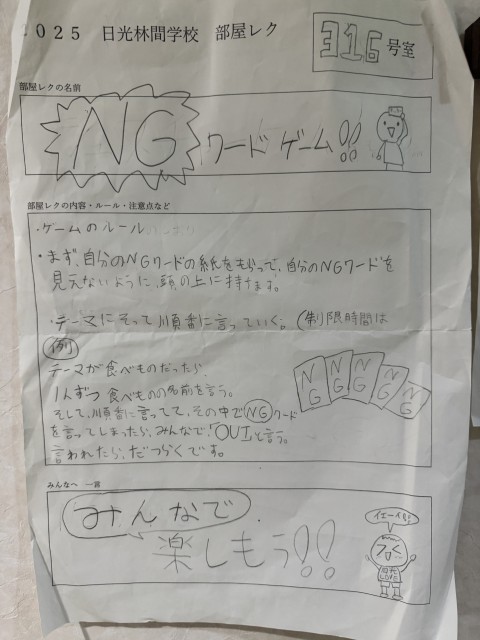 2025 日光林間学校 部屋レク
316号室
部屋レクの名前
NGワードゲーム!!
部屋レクの内容・ルール・注意点など
・ゲームのルール
・まず、自分のNGワードの紙をもらって、自分のNGワードを
見えないように、頭の上に持げます。
・テーマにそって順番に言っていく。(制限時間は
例
テーマが食べものだったら、
1人ずつ食べものの名前を言う。
そして、順番に言ってて、その中でNGワード
を言ってしまったら、みんなで、「OUT」と言う。
言われたら、だつらくです。
NG
NG
NG
NG
NG
みんなへ 一言
みんなで
楽しもう!!
イェーイ!!